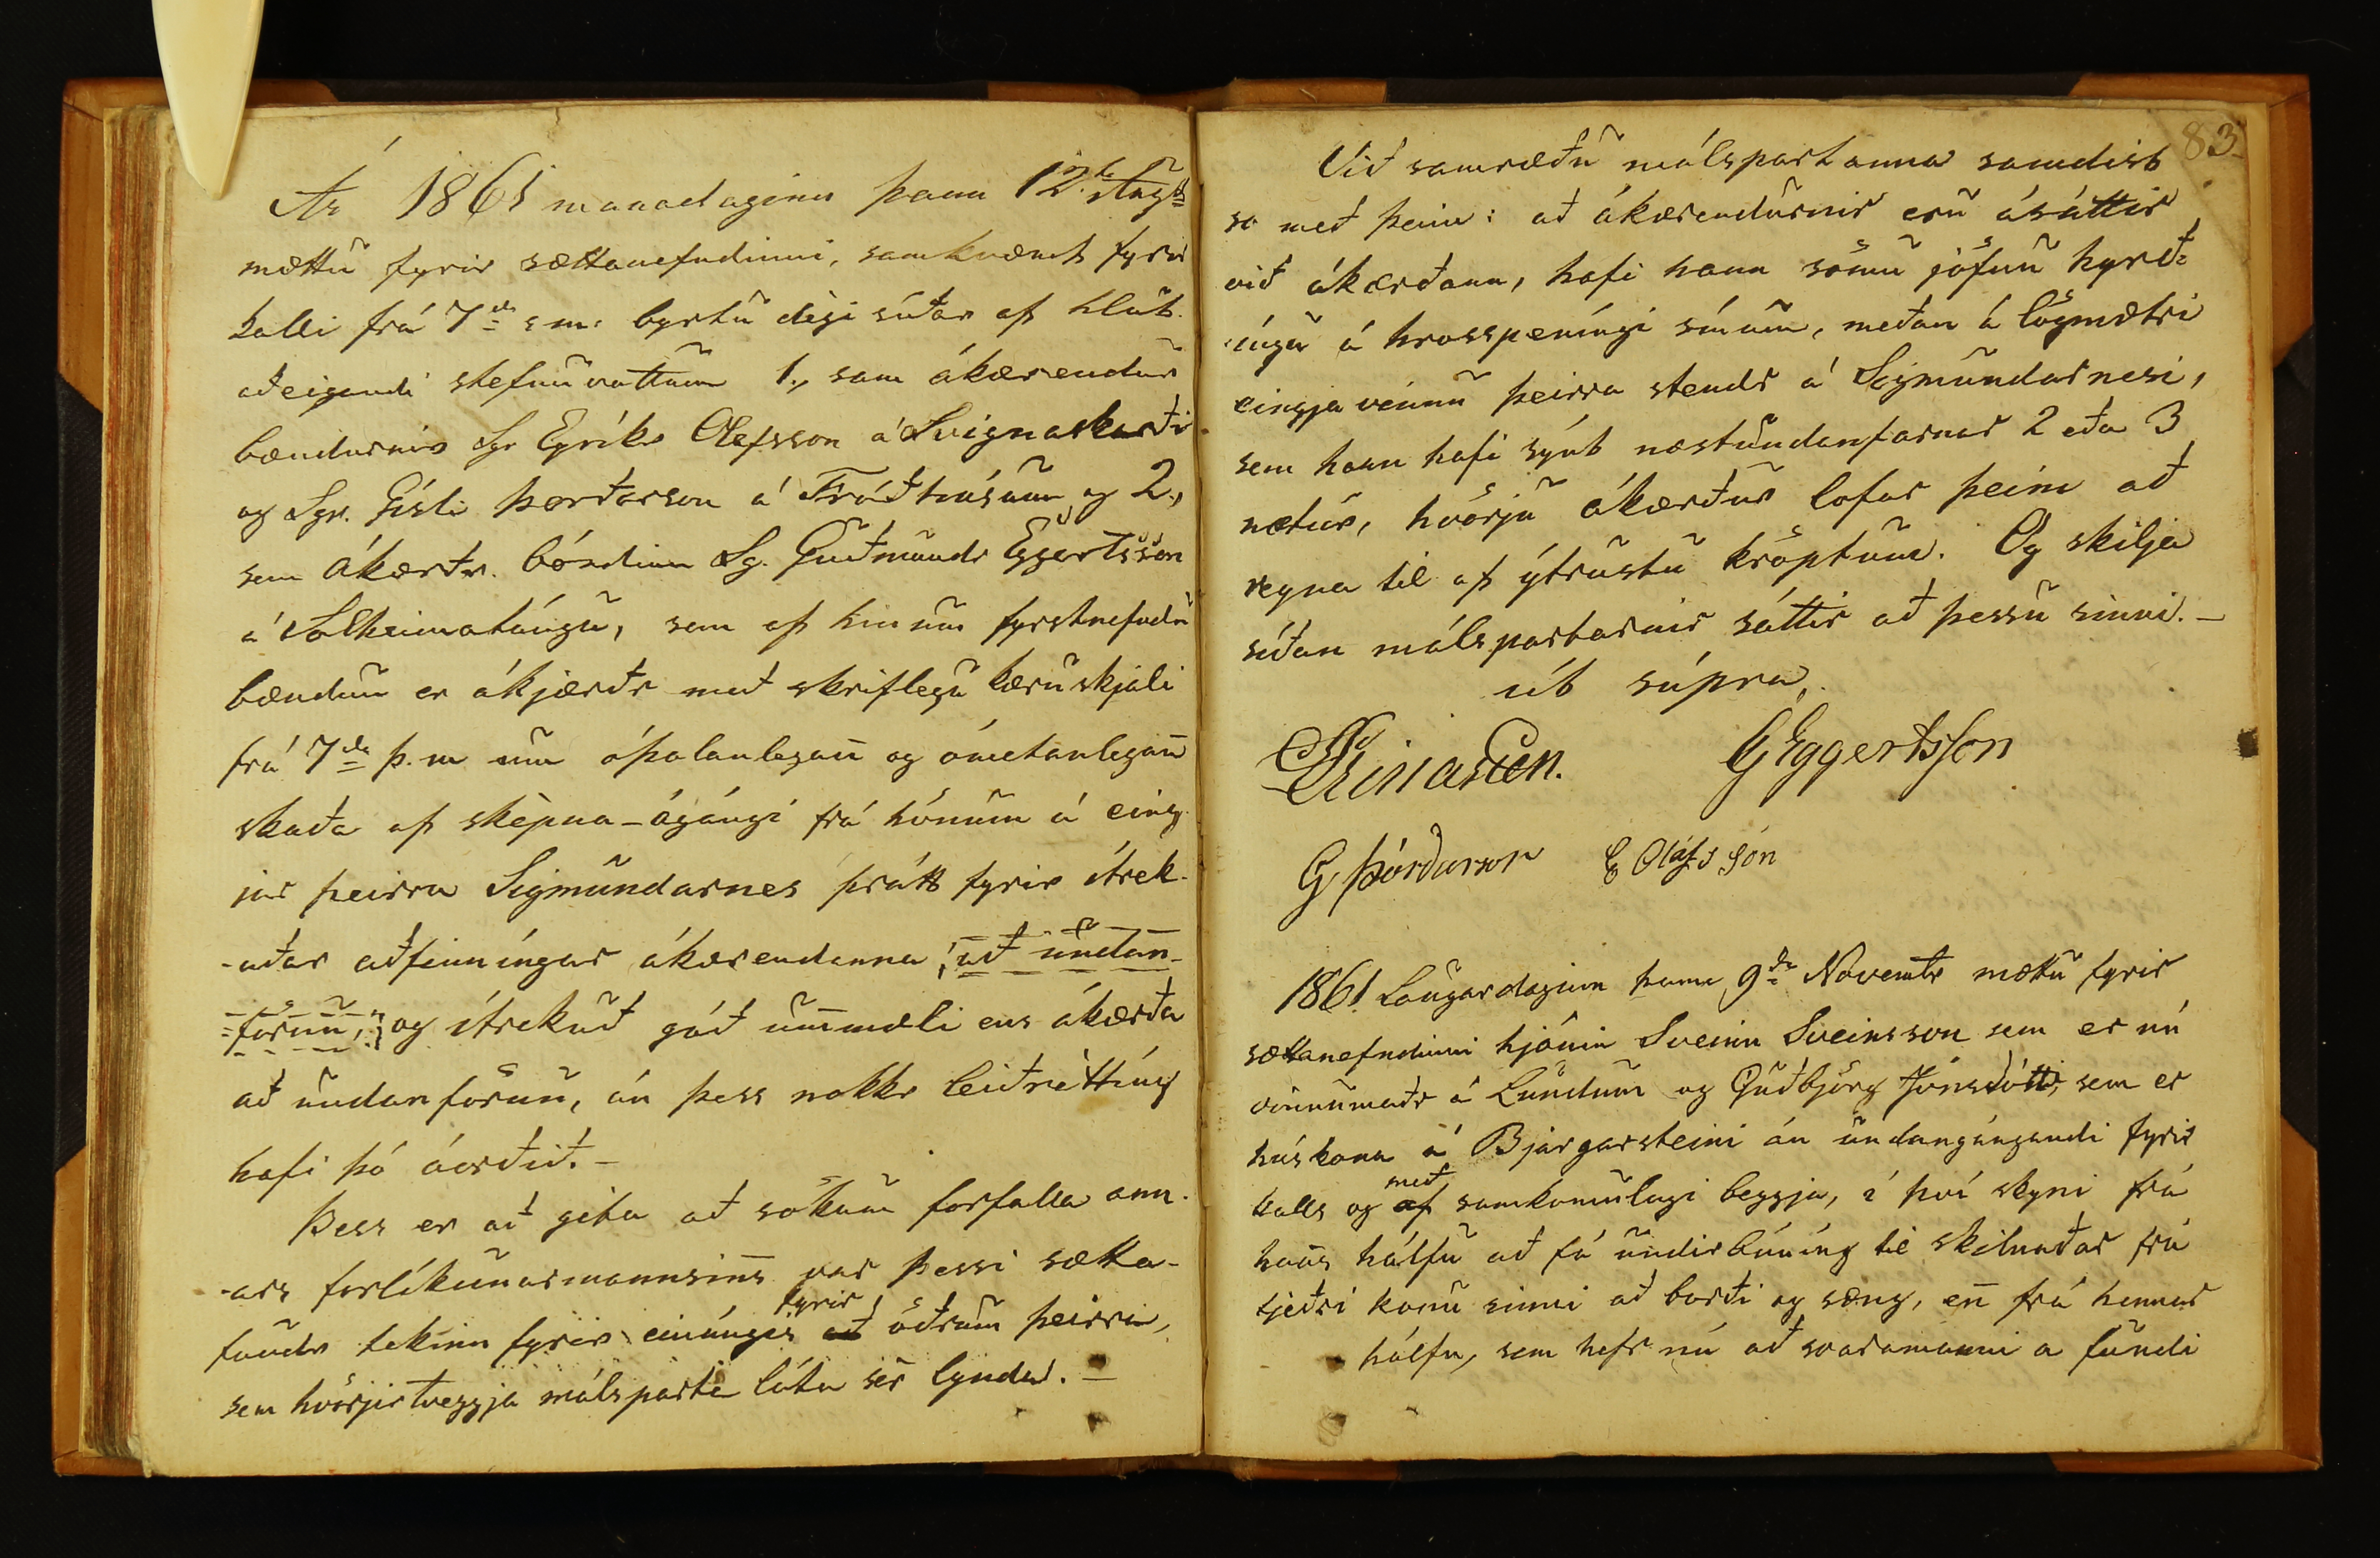 Ár 1861 manadaginn þann 12ta Augst
mættu fyrir sættanefndinni, samkvæmt fyrir
kalli frá 7da s.m: byrtu dègi síðar af hlut-
aðeigandi stefnuvottum 1., sem ákærendur
bændurnir Sgr Eyríkr Olafsson á Svignaskarði
og Sgr. Gísli Þorðarson á Fróðhúsum, og 2.,
sem ákærðr. bóndinn Sg. Guðmundr Eggertsson
á Sólheimatúngu, sem af hinum fyrstnefndu
bændum er ákjærðr með skriflegu kæruskjali
frá 7da þ.m um óþolanlegan̄ og ómetanlegan̄
skaða af skèpna-ágángi frá hönum á eing-
jar þeirra Sigmundarnes þrátt fyrir ítrek-
-aðar aðfinníngar ákærendanna, að undan-
-förnu, og ítrekuð góð ummæli ens ákærða
að undanförnu, án þess nokkr leiðrètting
hafi þó áorðið. -
Þess er að geta að sökum forfalla ann-
-ars forlíkunarmannsins var þessi sætta-
fundr tekinn fyrir einúngis að fyrir öðrum þeirra,
sem hvörjirtveggja málsparta láta sèr lynda. -
83.
Við samræðu málspartanna samdist
so með þeim: að ákærendurnir eru ásáttir
við ákærðann, hafi hann sömu jöfnu hyrð-
ingu á hrosspeníngi sínum, meðan á lögmætri
eingjavinnu þeirra stendr á Sigmundarnesi,
sem hann hafi sýnt næstundanfarnar 2 eða 3
nætur, hvörju ákærður lofar þeim að
reyna til af ýtrustu kröptum. Og skilja
síðan málspartarnir sáttir að þessu sinni. -
út supra.
GEggertsson
G Þórðarson E Oláfsson
1861. Laugardaginn þann 9da Novembr mættu fyrir
sættanefndinni hjónin Sveinn Sveinsson sem er nú
vinnumaðr á Lundum og Guðbjörg Jónsdóttir, sem er
húskona á Bjargarsteini án undangángandi fyrir
kalls og af með samkomulagi beggja, í því skyni frá
hans hálfu að fá undirbúníng til skilnaðar frá
tjeðri konu sinni að borði og sæng, en̄ frá hennar
hálfu, sem hefr nú að svaramanni a fundi